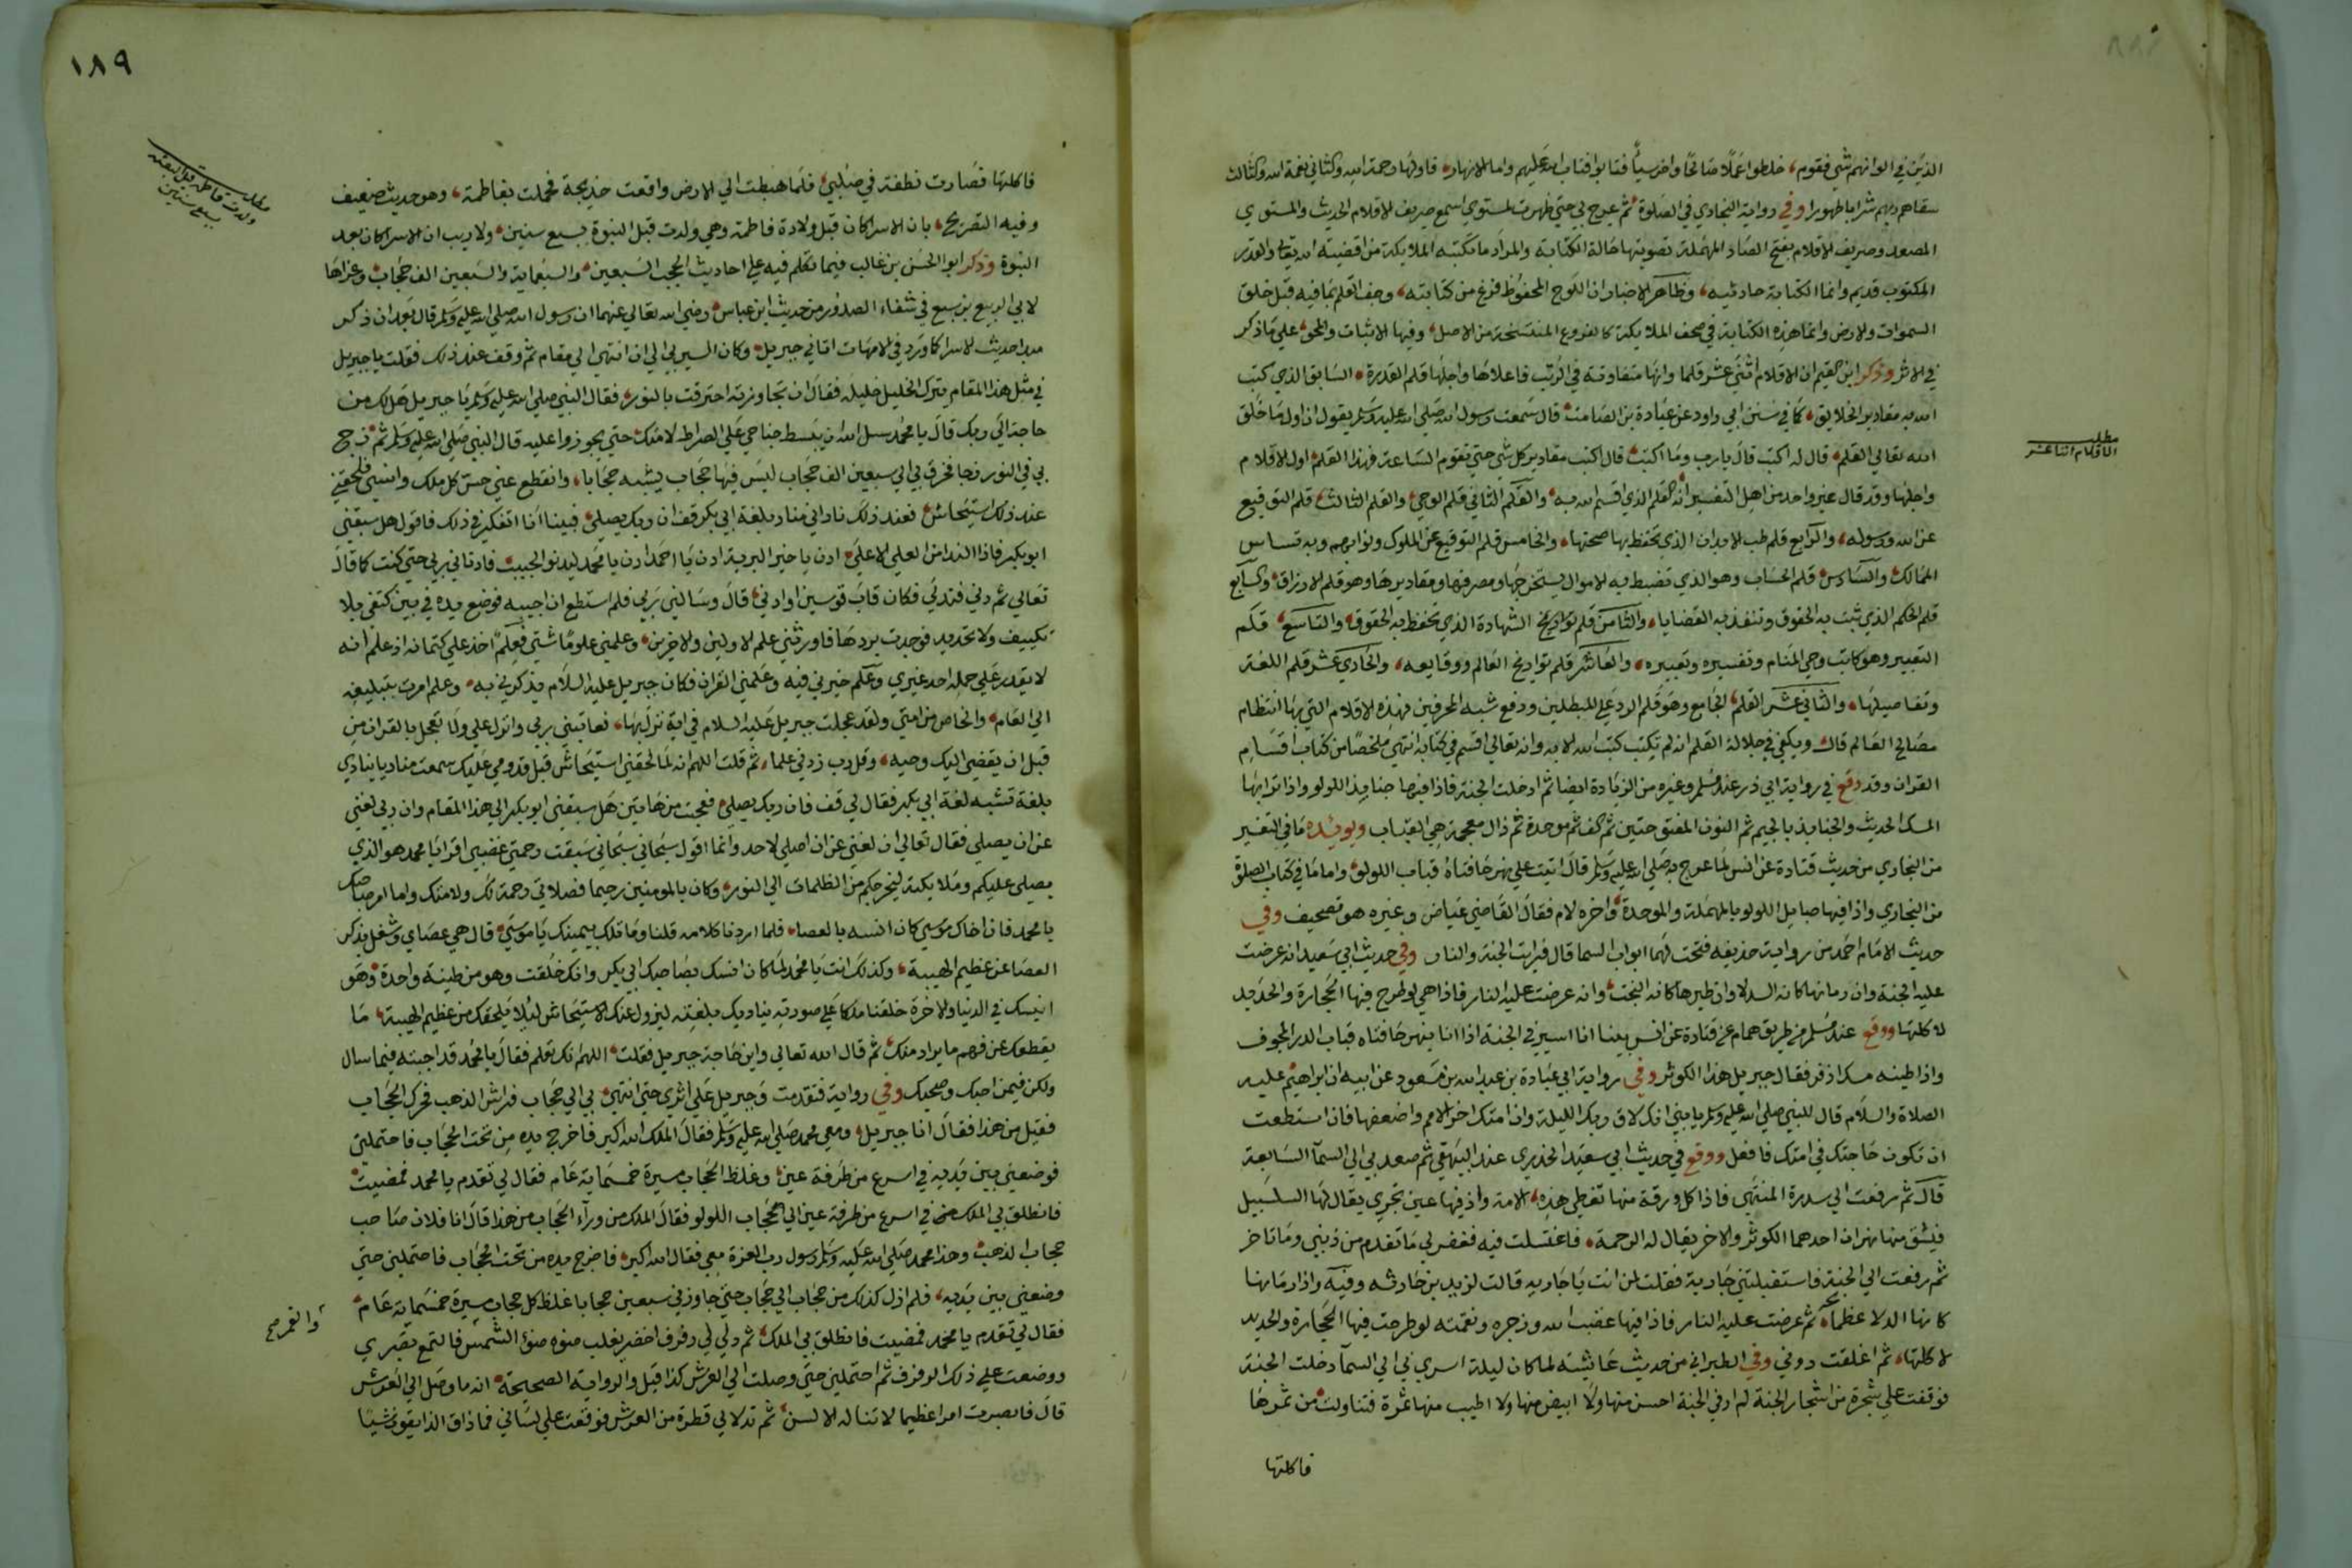 الذين في الوانهم شي فقوم، خلطوا عملا صالحا واخر سيئا فتابوا فتاب الله عليهم واما الانهار، فاولها رحمة الله والثاني نعمة الله والثالث
سقاهم ربهم شرابا طهورا وفي رواية البخاري في الصلوة ثم عرج بي حتي ظهرت لمستوي اسمع صريف الاقلام الحديث والمستوي
المصعد وصريف الاقلام بفتح الصاد المهملة تصويتها حالة الكتابة والمراد ما تكتبه الملايكة من اقضية الله تعالي والقدر
المكتوب قديم وانما الكتابة حادثة، وظاهر الاخبار ان اللوح المحفوظ فرغ من كتابته، وجف القلم بما فيه قبل خلق
السموات والارض وانما هذه الكتابة في صحف الملايكة كالفروع المنتسخة من الاصل، وفيها الاثبات والمحو علي ما ذكر
في الاثر وذكر ابن القيم ان الاقلام اثني عشر قلما وانها متفاوتة في الرتب فاعلاها واجلها قلم القدرة، السابق الذي كتب
الله به مقادير الخلايق، كما في سنن ابي داود عن عبادة بن الصامت قال سمعت رسول الله صلي الله عليه وسلم يقول ان اول ما خلق
الله تعالي القلم، قال له اكتب قال يا رب وما اكتب، قال اكتب مقادير كل شي حتي تقوم الساعة فهذا القلم، اول الاقلام
واجلها وقد قال غير واحد من اهل التفسير انه القلم الذي اقسم الله به، والقلم الثاني قلم الوحي، والقلم الثالث، قلم التوقيع
عن الله ورسوله، والرابع قلم طب الابدان الذي تحفظ بها صحتها، والخامس قلم التوقيع عن الملوك ونوابهم وبه تساس
الممالك والسادس قلم الحساب وهو الذي تضبط به الاموال مستخرجها ومصرفها ومقاديرها وهو قلم الارزاق، والسابع
قلم الحكم الذي تثبت به الحقوق وتنفذ به القضايا، والثامن قلم الشهادة الذي تحفظ به الحقوق، والتاسع، قلم
التعبير وهو كاتب وحي المنام وتفسيره وتعبيره، والعاشر قلم تواريخ العالم ووقايعه، والحادي عشر قلم اللغة
وتفاصيلها، والثاني عشر القلم، الجامع وهو قلم الرد علي المبطلين ودفع شبه المحرفين فهذه الاقلام التي بها انتظام
مصالح العالم قال ويكفي في جلالة القلم انه لم تكتب كتب الله الا به وانه تعالي اقسم في كتابه انتهي ملخصا من كتاب اقسام
القران وقد وقع في رواية ابي ذر عند مسلم وغيره من الزيادة ايضا ثم ادخلت الجنة فاذا فيها جنابذ اللولو واذا ترابها
المسك الحديث والجنابذ بالجيم ثم النون المفتوحتين ثم الف ثم موحدة ثم ذال معجمة هي القباب ويويده ما في التفسير
من البخاري من حديث قتادة عن انس لما عرج به صلي الله عليه وسلم قال اتيت علي نهر حافتاه قباب اللولو، واما ما في كتاب الصلوة
من البخاري واذا فيها حبايل اللولو بالمهملة والموحدة، واخره لام فقال القاضي عياض وغيره هو تصحيف وفي
حديث الامام احمد من رواية حذيفه فتحت لهما ابواب السما قال فرايت الجنة والنار وفي حديث ابي سعيد انه عرضت
عليه الجنة وان رمانها كانه الدلا وان طيرها كانه البخت، وانه عرضت عليه النار فاذا هي لو طرح فيها الحجارة والحديد
لاكلتها ووقع عند مسلم من طريق همام عن قتادة عن انس بينا انا اسير في الجنة اذا انا بنهر حافتاه قباب الدر المجوف
واذا طينه مسك اذفر فقال جبريل هذا الكوثر وفي رواية ابي عبادة بن عبد الله بن مسعود عن ابيه ان ابراهيم عليه
الصلاة والسلام قال للنبي صلي الله عليه وسلم يا بني انك لاق ربك الليلة وان امتك اخر الامم واضعفها فان استطعت
ان تكون حاجتك في امتك فافعل ووقع في حديث ابي سعيد الخدري عند البيهقي ثم صعد بي الي السمآ السابعة
قال ثم رفعت الي سدرة المنتهي فاذا كل ورقة منها تغطي هذه الامة واذ فيها عين تجري يقال لها السلسبيل
فينشق منها نهران احدهما الكوثر والاخر يقال له الرحمة، فاغتسلت فيه فغفر لي ما تقدم من ذنبي وما تاخر
ثم رفعت الي الجنة فاستقبلتني جارية فقلت لمن انت يا جارية قالت لزيد بن حارثه وفيه واذا رمانها
كانها الدلا عظما، ثم عرضت عليه النار فاذا فيها غضب الله وزجره ونقمته لو طرحت فيها الحجارة والحديد
لاكلتها، ثم اغلقت دوني وفي الطبراني من حديث عائشة لما كان ليلة اسري بي الي السمآ دخلت الجنة
فوقفت علي شجرة من اشجار الجنة لم ار في الجنة احسن منها ولا ابيض منها ولا اطيب منها ثمرة فتناولت من ثمرها
فاكلتها
مطلب
الاقلام اثنا عشر
١٨٩
مطلب
ولدت فاطمة قبل البعثة
بسبع سنين
فاكلتها فصارت نطفة في صلبي، فلما هبطت الي الارض واقعت خديجة فحملت بفاطمة، وهو حديث ضعيف
وفيه التصريح، بان الاسرا كان قبل ولادة فاطمة وهي ولدت قبل النبوة بسبع سنين، ولا ريب ان الاسرا كان بعد
النبوة وذكر ابو الحسن بن غالب فيما تكلم فيه علي احاديث الحجب السبعين، والسبعماية والسبعين الف حجاب، وعزاها
لابي الربيع بن سبع في شفاء الصدور من حديث ابن عباس رضي الله تعالي عنهما ان رسول الله صلي الله عليه وسلم قال بعد ان ذكر
مبدا حديث الاسرا كما ورد في الامهات اتاني جبريل، وكان السير بي الي ان انتهي الي مقام ثم وقف عند ذلك فقلت يا جبريل
في مثل هذا المقام يترك الخليل خليله فقال ان تجاوزته احترقت بالنور، فقال النبي صلي الله عليه وسلم يا جبريل هل لك من
حاجة الي ربك قال يا محمد سل الله ان يبسط جناحي علي الصراط لامتك حتي يجوزوا عليه قال النبي صلي الله عليه وسلم ثم زج
بي في النور زجا فخرق بي الي سبعين الف حجاب ليس فيها حجاب يشبه حجابا، وانقطع عني حس كل ملك وانسي فلحقني
عند ذلك استيحاش فعند ذلك ناداني مناد بلغة ابي بكر قف ان ربك يصلي، فبينا انا اتفكر في ذلك فاقول هل سبقني
ابو بكر فاذا الندا من العلي الاعلي، ادن يا خير البرية ادن يا احمد ادن يا محمد ليدنو الحبيب فادناني ربي حتي كنت كما قال
تعالي ثم دني فتدلي فكان قاب قوسين او ادني، قال وسالني ربي فلم استطع ان اجيبه فوضع يده في بين كتفي بلا
تكييف ولا تحديد فوجدت بردها فاورثني علم الاولين والاخرين، وعلمني علوما شتي فعلم اخذ علي كتمانه اذ علم انه
لا يقدر علي حمله احد غيري وعلم خيرني فيه وعلمني القران فكان جبريل عليه السلام يذكرني به، وعلم امرت بتبليغه
الي العام، والخاص من امتي ولقد عجلت جبريل عليه السلام في اية نزل بها، فعاتبني ربي وانزل علي ولا تعجل بالقران من
قبل ان يقضي اليك وحيه، وقل رب زدني علما، ثم قلت اللهم انه لما لحقني استيحاش قبل قدومي عليك سمعت مناديا ينادي
بلغة تشبه لغة ابي بكر فقال لي قف فان ربك يصلي، فعجبت من هاتين هل سبقني ابو بكر الي هذا المقام وان ربي لغني
عن ان يصلي فقال تعالي ان لغني عن ان اصلي لاحد وانما اقول سبحاني سبحاني سبقت رحمتي غضبي اقرا يا محمد هو الذي
يصلي عليكم وملايكته ليخرجكم من الظلمات الي النور، وكان بالمومنين رحيما فصلاتي رحمة لك ولامتك واما امر صاحبك
يا محمد فان اخاك موسي كان انسه بالعصا، فلما اردنا كلامه قلنا وما تلك بيمينك يا موسي، قال هي عصاي وشغل بذكر
العصا عن عظيم الهيبة، وكذلك انت يا محمد لما كان انسك بصاحبك ابي بكر وانك خلقت وهو من طينة واحدة، وهو
انيسك في الدنيا والاخرة خلقنا ملكا علي صورته يناديك بلغته ليزول عنك الاستيحاش لئلا يلحقك من عظيم الهيبة، ما
يقطعك عن فهم ما يراد منك، ثم قال الله تعالي واين حاجة جبريل فقلت، اللهم انك تعلم فقال يا محمد قد اجبته فيما سال
ولكن فيمن احبك وصحبك وفي رواية فتقدمت وجبريل علي اثري حتي انتهي، بي الي حجاب فراش الذهب فحرك الحجاب
فقيل من هذا فقال انا جبريل، ومعي محمد صلي الله عليه وسلم فقال الملك الله اكبر فاخرج يده من تحت الحجاب فاحتملني
فوضعني بين يديه في اسرع من طرفة عين، وغلظ الحجاب مسيرة خمسماية عام فقال لي تقدم يا محمد فمضيت
فانطلق بي الملك في اسرع من طرفة عين الي حجاب اللولو فقال الملك من ورآء الحجاب من هذا قال انا فلان صاحب
حجاب الذهب، وهذا محمد صلي الله عليه وسلم رسول رب العزة معي فقال الله اكبر، فاخرج يده من تحت الحجاب فاحتملني حتي
وضعني بين يديه، فلم ازل كذلك من حجاب الي حجاب حتي جاوز بي سبعين حجابا غلظ كل حجاب مسيرة خمسماية عام،
فقال لي تقدم يا محمد فمضيت فانطلق بي الملك، ثم دلي لي رفرف اخضر يغلب ضوه ضؤ الشمس فالتمع بصري
ووضعت علي ذلك الرفرف ثم احتملني حتي وصلت الي العرش كذا قيل والرواية الصحيحة، انه ما وصل الي العرش
قال فابصرت امرا عظيما لا تناله الالسن، ثم تدلا لي قطرة من العرش فوقعت علي لساني فما ذاق الذايقون شيئا
والقمر صح